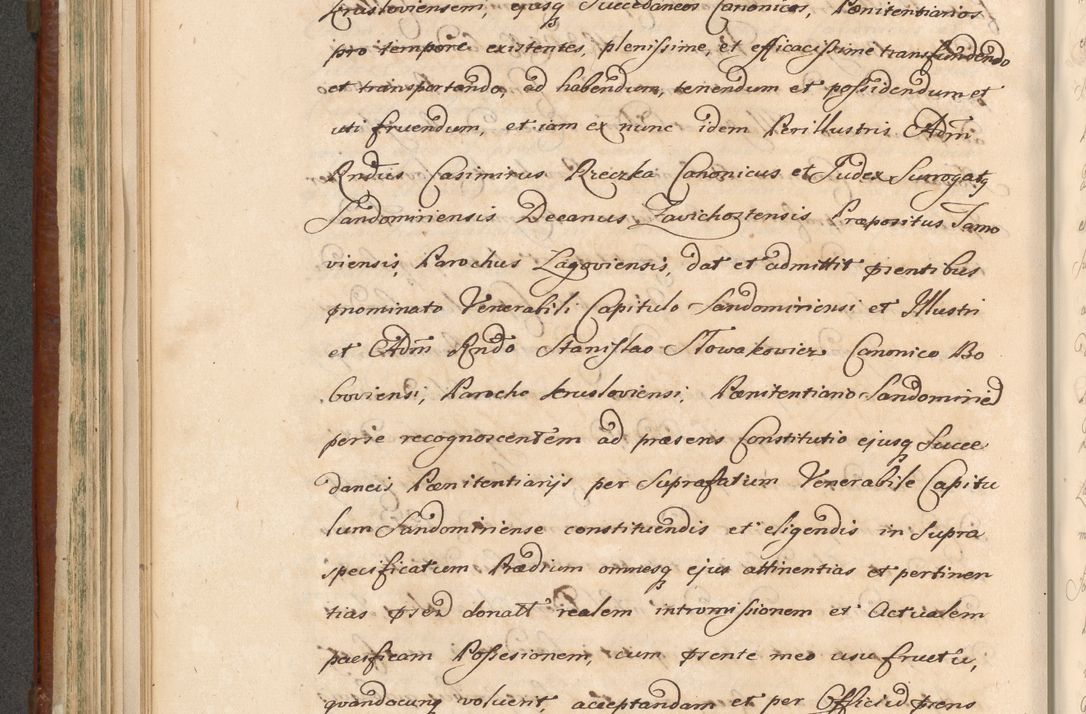 Krusloviensem, ejusq Succedaneos Canonicos, Pœnitentiarios
pro tempore existentes, plenissime, et efficacissime transfundendo
et transportando, ad habendum, tenendum et possidendum et
uti fruendum, et iam ex nunc idem Perillustris Adm̃
Rndus Casimirus Rzeczka Canonicus et Judex Surrogatq
Sandomiriensis Decanus Zavichoztensis Præpositus Tarno
viensis, Parochus Zagoviensis, dat et admittit pœntibus
pnominato Venerabili Capitulo Sandomiriensi et Illustri
et Adm̃ Rndo Stanislao Słowakowicz Canonico Bo
boviensi, Parocho Krusloviensi, Pœnitentiario Sandomirień
per se recognoscentem ad præsens Constitutio ejusq Succe
daneis Pœnitentiarijs per Suprafatum Venerabile Capitu
lum Sandomiriense constituendis et eligendis in Supra
specificatum Prædium omnesq ejus attinentias et pertinen
tias donatt realem intromissionem et Actualem
pacificam Possesionem, cum psente meo usufructu,
quandocunq voluerit, acceptandam et per Officiũ prens